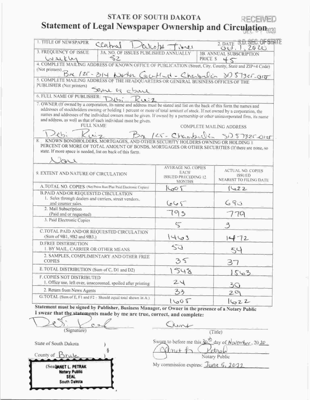 STATE OF SOUTH DAKOTA
RECEIVED
Statement of Legal Newspaper Ownership and Circulation
1. TITLE OF NEWSPAPER
Central Dakota Times
2. DATE
3. FREQUENCY OF ISSUE
Weekly
3A. NO. OF ISSUES PUBLISHED ANNUALLY
52
3B. ANNUAL SUBSCRIPTION
PRICE $ 45
4. COMPLETE MAILING ADDRESS OF KNOWN OFFICE OF PUBLICATION (Street, City, County, State and ZIP+4 Code)
(Not printers)
5. COMPLETE MAILING ADDRESS OF THE HEADQUARTERS OR GENERAL BUSINESS OFFICES OF THE
PUBLISHER (Not printers)
Same as above
6. FULL NAME OF PUBLISHER
Debi Ruiz
7. OWNER (If owned by a corporation, its name and address must be stated and list on the back of this form the names and
addresses of stockholders owning or holding 1 percent or more of total amount of stock. If not owned by a corporation, the
names and addresses of the individual owners must be given. If owned by a partnership or other unincorporated firm, its name
and address, as well as that of each individual must be given.
FULL NAME
COMPLETE MAILING ADDRESS
Debi Ruiz
8. KNOWN BONDHOLDERS, MORTGAGES, AND OTHER SECURITY HOLDERS OWNING OR HOLDING 1
PERCENT OR MORE OF TOTAL AMOUNT OF BONDS, MORTGAGES OR OTHER SECURITIES (If there are none, so
state. If more space is needed, list on back of this form.
None
9. EXTENT AND NATURE OF CIRCULATION
AVERAGE NO. COPIES
EACH
ISSUED PRECEDING 12
MONTHS
ACTUAL NO. COPIES
ISSUED
NEAREST TO FILING DATE
A. TOTAL NO. COPIES
1605
1622
B. PAID AND/OR REQUESTED CIRCULATION
1. Sales through dealers and carriers, street vendors,
and counter sales
665
690
2. Mail Subscription
(Paid and/or requested)
793
779
3. Paid Electronic Copies
5
3
C. TOTAL PAID AND/OR REQUESTED CIRCULATION
(Sum of 9B1, 9B2 and 9B3.)
1463
1472
D. FREE DISTRIBUTION
1. BY MAIL, CARRIER OR OTHER MEANS
50
54
2. SAMPLES, COMPLIMENTARY AND OTHER FREE
COPIES
35
37
E. TOTAL DISTRIBUTION (Sum of C, D1 and D2)
1548
1563
F. COPIES NOT DISTRIBUTED
1. Office use, left over, unaccounted, spoiled after printing
24
30
2. Return from News Agents
33
29
G. TOTAL (Sum of E, F1 and F2 - Should equal total shown in A.)
1605
1622
Statement must be signed by Publisher, Business Manager, or Owner in the presence of a Notary Public
I swear that the statements made by me are true, correct, and complete:
Owner
(Signature)
(Title)
State of South Dakota
County of Brule
Sworn to before me this
day of November, 20
Notary Public
My commission expires
JANET L. PETRAK
Notary Public
SEAL
South Dakota